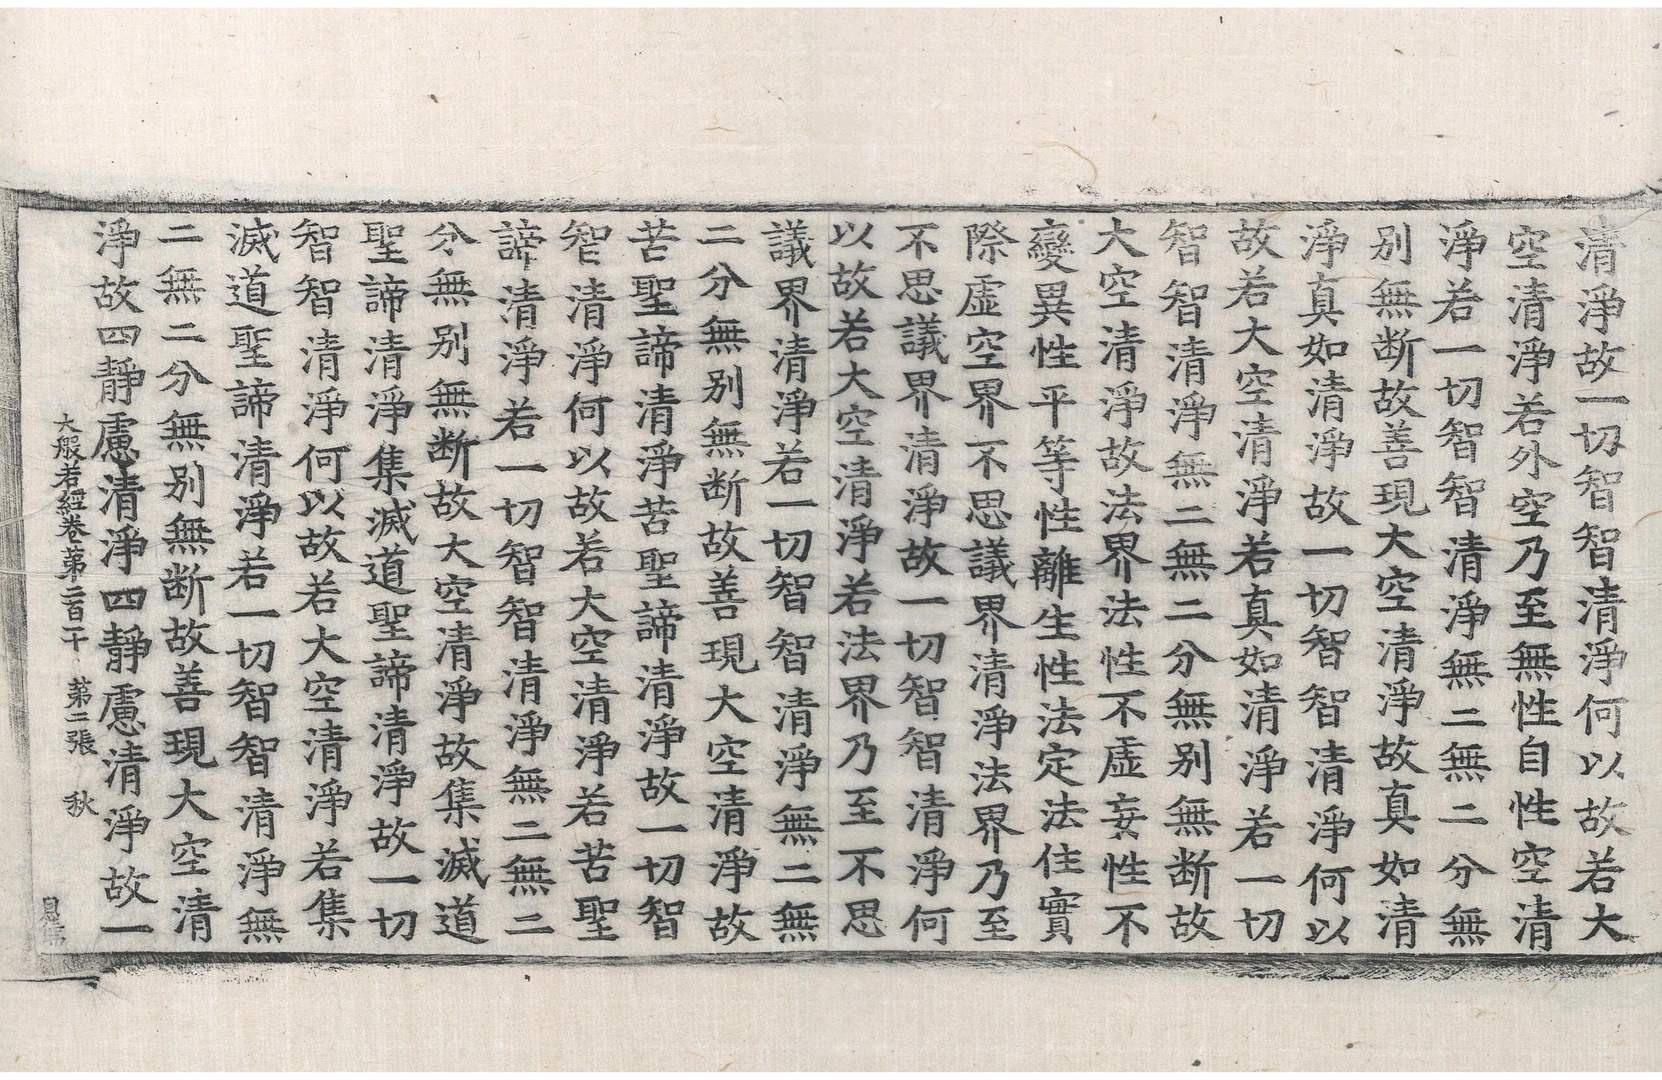 清淨故一切智智清淨何以故若大
空清淨若外空乃至無性自性空清
淨若一切智智清淨無二無二分無
別無断故善現大空清淨故真如清
淨真如清淨故一切智智清淨何以
故若大空清淨若真如清淨若一切
智智清淨無二無二分無別無断故
大空清淨故法界法性不虛妄性不
變異性平等性離生性法定法住實
際虛空界不思議界清淨法界乃至
不思議界清淨故一切智智清淨何
以故若大空清淨若法界乃至不思
議界清淨若一切智智清淨無二無
二分無別無断故善現大空清淨故
苦聖諦清淨苦聖諦清淨故一切智
智清淨何以故若大空清淨若苦聖
諦清淨若一切智智清淨無二無二
分無別無断故大空清淨故集滅道
聖諦清淨集滅道聖諦清淨故一切
智智清淨何以故若大空清淨若集
滅道聖諦清淨若一切智智清淨無
二無二分無別無断故善現大空清
淨故四靜慮清淨四靜慮清淨故一
大般若經卷第二百一十 第二張 秋